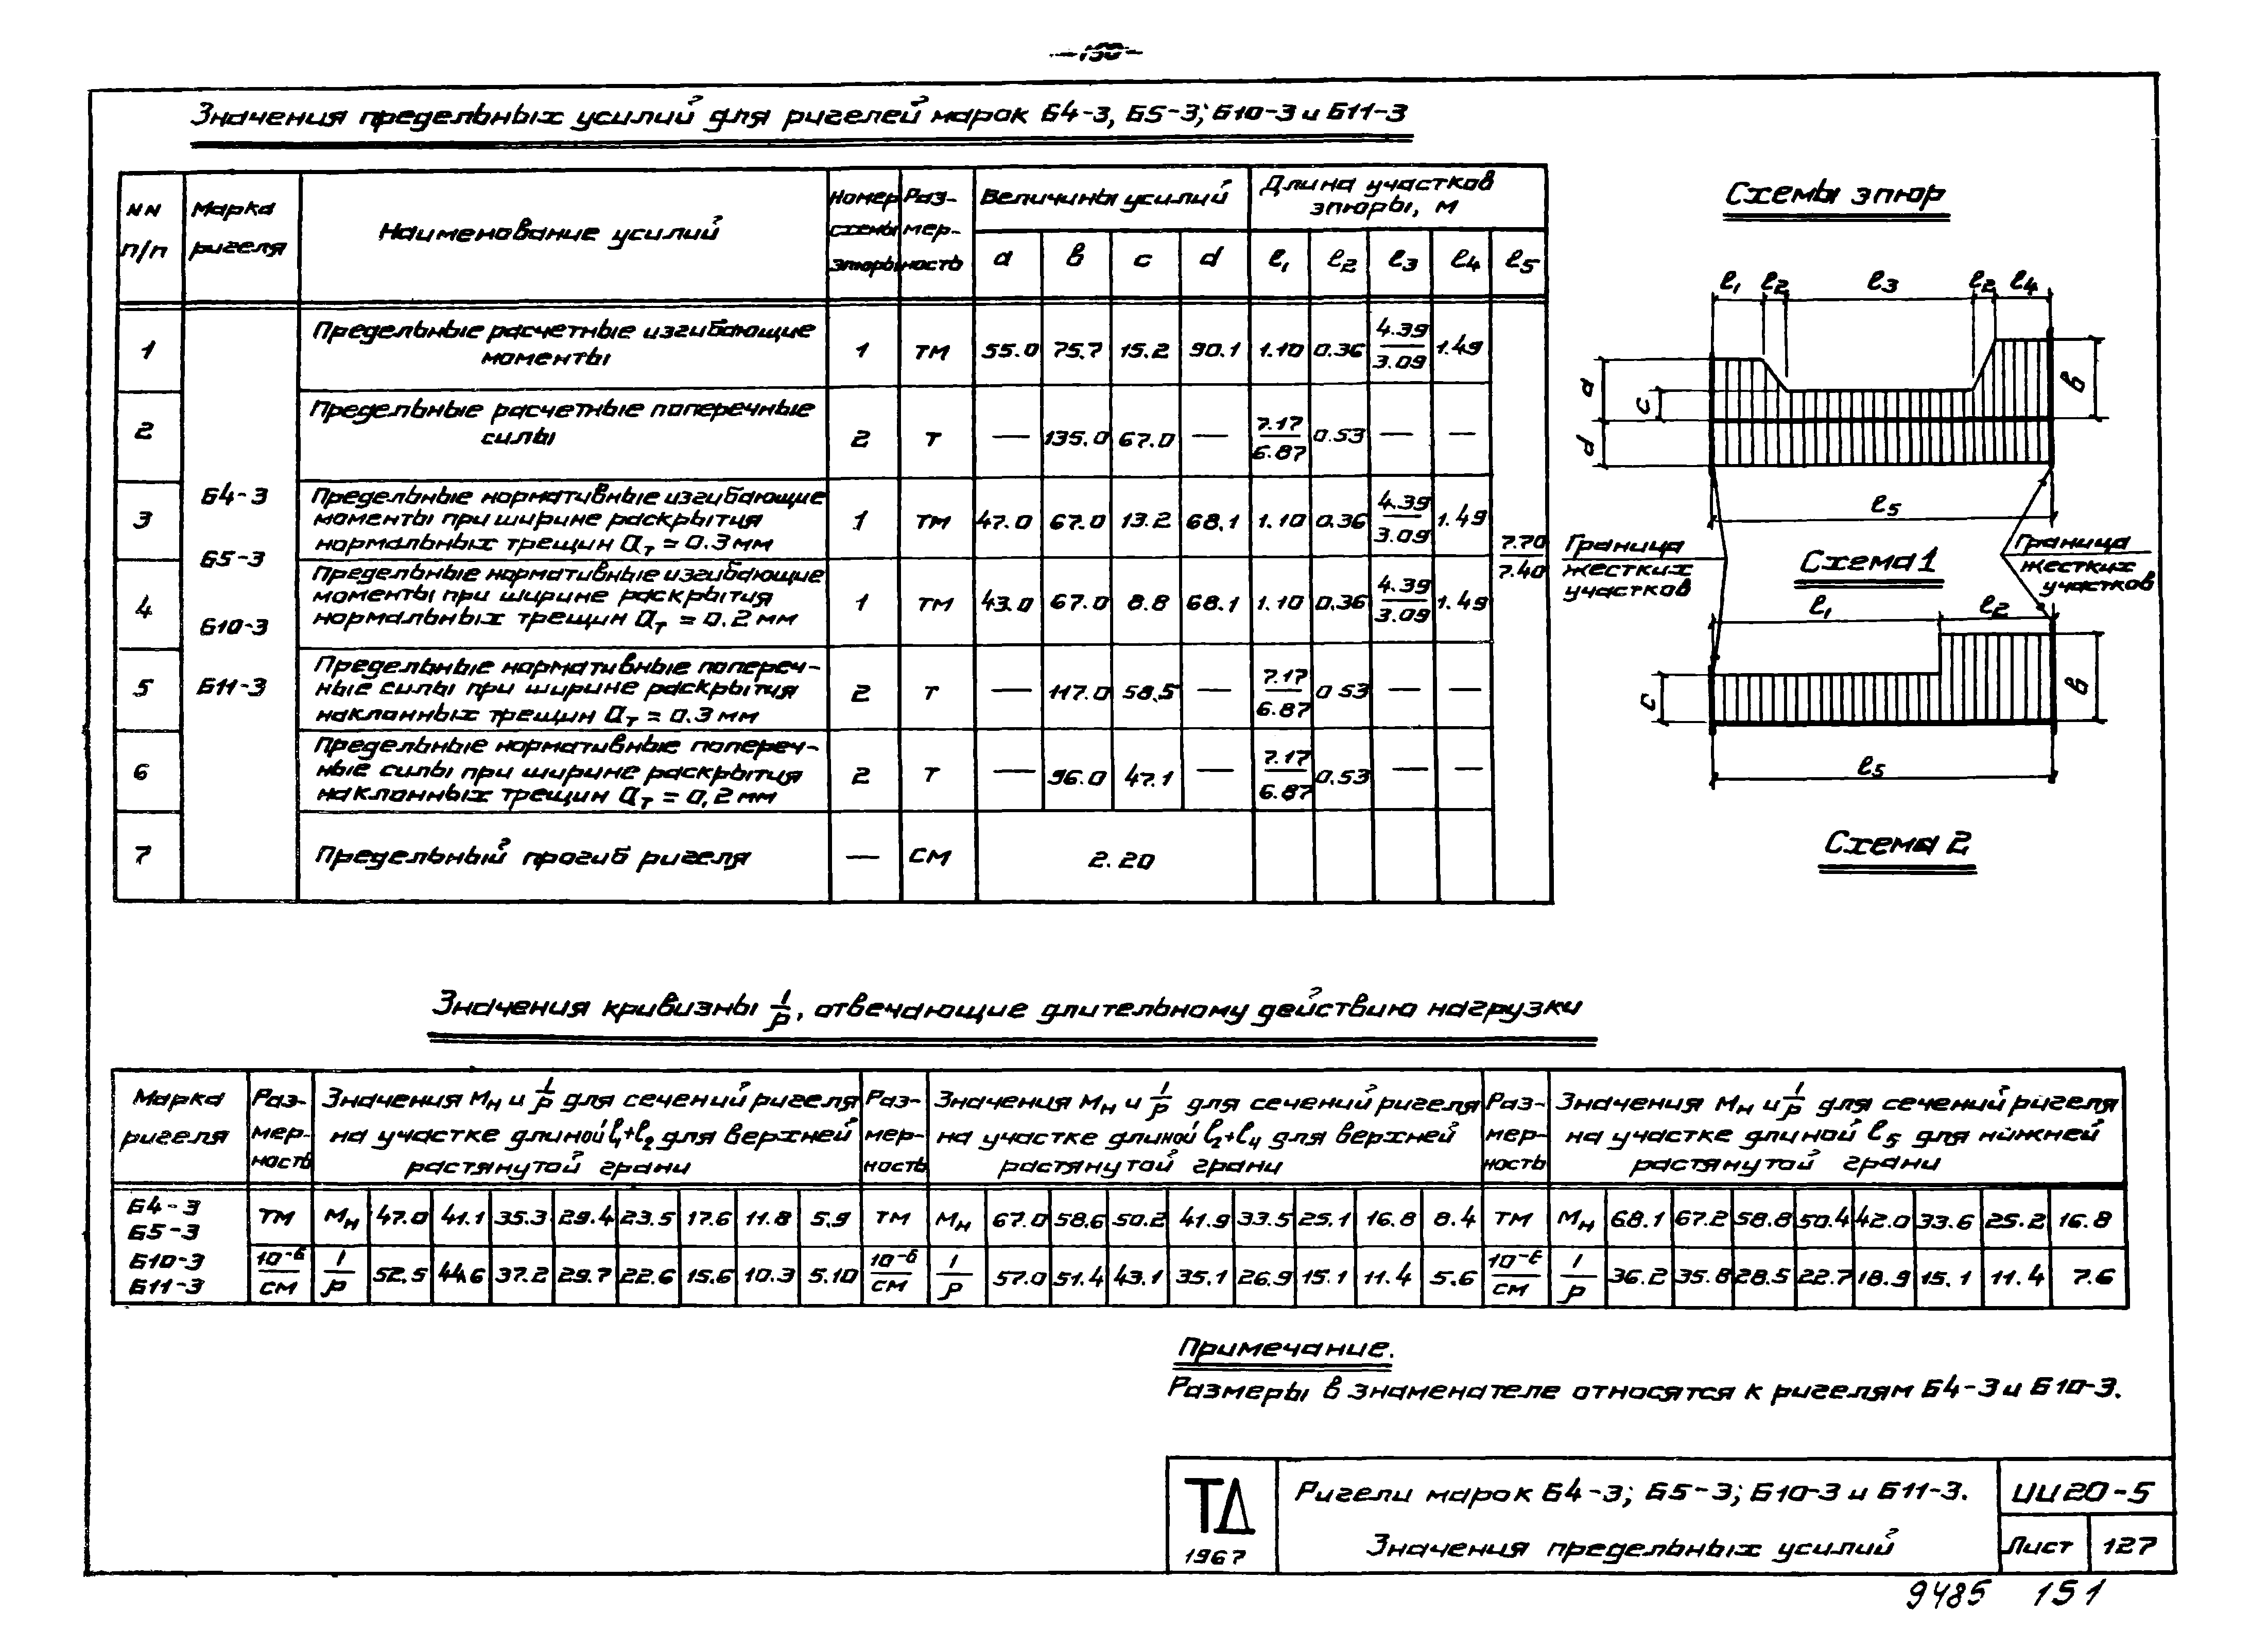 -150-
Значения предельных усилий для ригелей марок Б4-3, Б5-3; Б10-3 и Б11-3
NN п/п | Марка ригеля | Наименование усилий | Номер схемы эпюры | Размерность | Величины усилий | Длина участков эпюры, м
a | в | c | d | ℓ1 | ℓ2 | ℓ3 | ℓ4 | ℓ5
1 | Предельные расчетные изгибающие моменты | 1 | тм | 55.0 | 75.7 | 15.2 | 90.1 | 1.10 | 0.36 | 4.39/3.09 | 1.49
2 | Предельные расчетные поперечные силы | 2 | т | — | 135.0 | 67.0 | — | 7.17/6.87 | 0.53 | — | —
Б4-3
Б5-3
Б10-3
Б11-3
3 | Предельные нормативные изгибающие моменты при ширине раскрытия нормальных трещин aт = 0.3 мм | 1 | тм | 47.0 | 67.0 | 13.2 | 68.1 | 1.10 | 0.36 | 4.39/3.09 | 1.49
7.70/7.40
4 | Предельные нормативные изгибающие моменты при ширине раскрытия нормальных трещин aт = 0.2 мм | 1 | тм | 43.0 | 67.0 | 8.8 | 68.1 | 1.10 | 0.36 | 4.39/3.09 | 1.49
5 | Предельные нормативные поперечные силы при ширине раскрытия наклонных трещин aт = 0.3 мм | 2 | т | — | 117.0 | 58.5 | — | 7.17/6.87 | 0 53 | — | —
6 | Предельные нормативные поперечные силы при ширине раскрытия наклонных трещин aт = 0,2 мм | 2 | т | — | 96.0 | 47.1 | — | 7.17/6.87 | 0.53 | — | —
7 | Предельный прогиб ригеля | — | см | 2.20
Схемы эпюр
ℓ1 ℓ2 ℓ3 ℓ2 ℓ4
a
c
в
d
ℓ5
Граница жестких участков
Схема 1
Граница жестких участков
ℓ1 ℓ2
c
в
ℓ5
Схема 2
Значения кривизны 1/ρ, отвечающие длительному действию нагрузки
Марка ригеля | Размерность | Значения Мн и 1/ρ для сечений ригеля на участке длиной ℓ1+ℓ2 для верхней растянутой грани | Размерность | Значения Мн и 1/ρ для сечений ригеля на участке длиной ℓ2+ℓ4 для верхней растянутой грани | Размерность | Значения Мн и 1/ρ для сечений ригеля на участке длиной ℓ5 для нижней растянутой грани
Б4-3
Б5-3
Б10-3
Б11-3
тм | Мн | 47.0 | 41.1 | 35.3 | 29.4 | 23.5 | 17.6 | 11.8 | 5.9 | тм | Мн | 67.0 | 58.6 | 50.2 | 41.9 | 33.5 | 25.1 | 16.8 | 8.4 | тм | Мн | 68.1 | 67.2 | 58.8 | 50.4 | 42.0 | 33.6 | 25.2 | 16.8
10-6/см | 1/ρ | 52.5 | 44.6 | 37.2 | 29.7 | 22.6 | 15.6 | 10.3 | 5.10 | 10-6/см | 1/ρ | 57.0 | 51.4 | 43.1 | 35.1 | 26.9 | 15.1 | 11.4 | 5.6 | 10-6/см | 1/ρ | 36.2 | 35.8 | 28.5 | 22.7 | 18.9 | 15.1 | 11.4 | 7.6
Примечание.
Размеры в знаменателе относятся к ригелям Б4-3 и Б10-3.
ТД
1967
Ригели марок Б4-3; Б5-3; Б10-3 и Б11-3.
Значения предельных усилий
ИИ20-5
Лист 127
9485 151